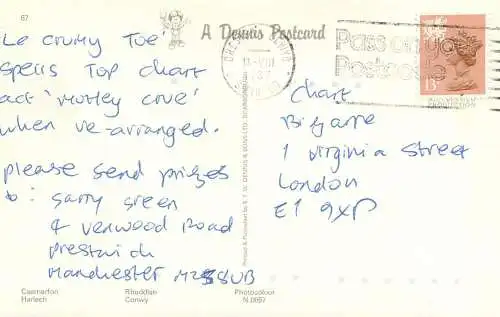 67
A Dennis Postcard
Le crumy Toe'
spells Top chart
act 'Motley crue'
when re-arranged.
please send prizes
to: sarry green
4 verwood Road
prestwich
Manchester M25 8UB
Chart
Bizarre
1 virginia street
London
E1 9XP
Pass on your
Postcode
13
Printed & Published by E.T.W. DENNIS & SONS LTD., SCARBOROUGH
Caernarfon
Harlech
Rhuddlan
Conwy
Photocolour
N.0667